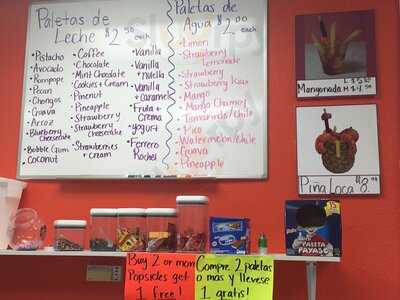 Paletas de
Leche $2.50 each
• Pistacho
• Avocado
• Rompope
• Pecan
• Chongos
• Guava
• Arroz
• Blueberry
Cheesecake
• Bubble Gum
• Coconut
• Coffee
• Chocolate
• Mint Chocolate
• Cookies + Cream
• Pinenut
• Pineapple
• Strawberry
• Strawberry
Cheesecake
• Strawberries
+ Cream
• Vanilla
• Vanilla
+ nutella
• Vanilla
+ caramel
• Fruta +
Crema
• Yogurt
• Ferrero
Rocher
Paletas de
Agua $2.00 each
• Limon
• Strawberry
lemonade
• Strawberry
• Strawberry
• Mango
• Mango Chamoy
• Tamarindo/Chile
• Pico
• Watermelon/Chile
• Guava
• Pineapple
Mangonada
Piña Loca $8.00
Buy 2 or more
Popsicles get
1 free!
Compre 2 paletas
o mas y llevese
1 gratis!
PALETA
PAYASO